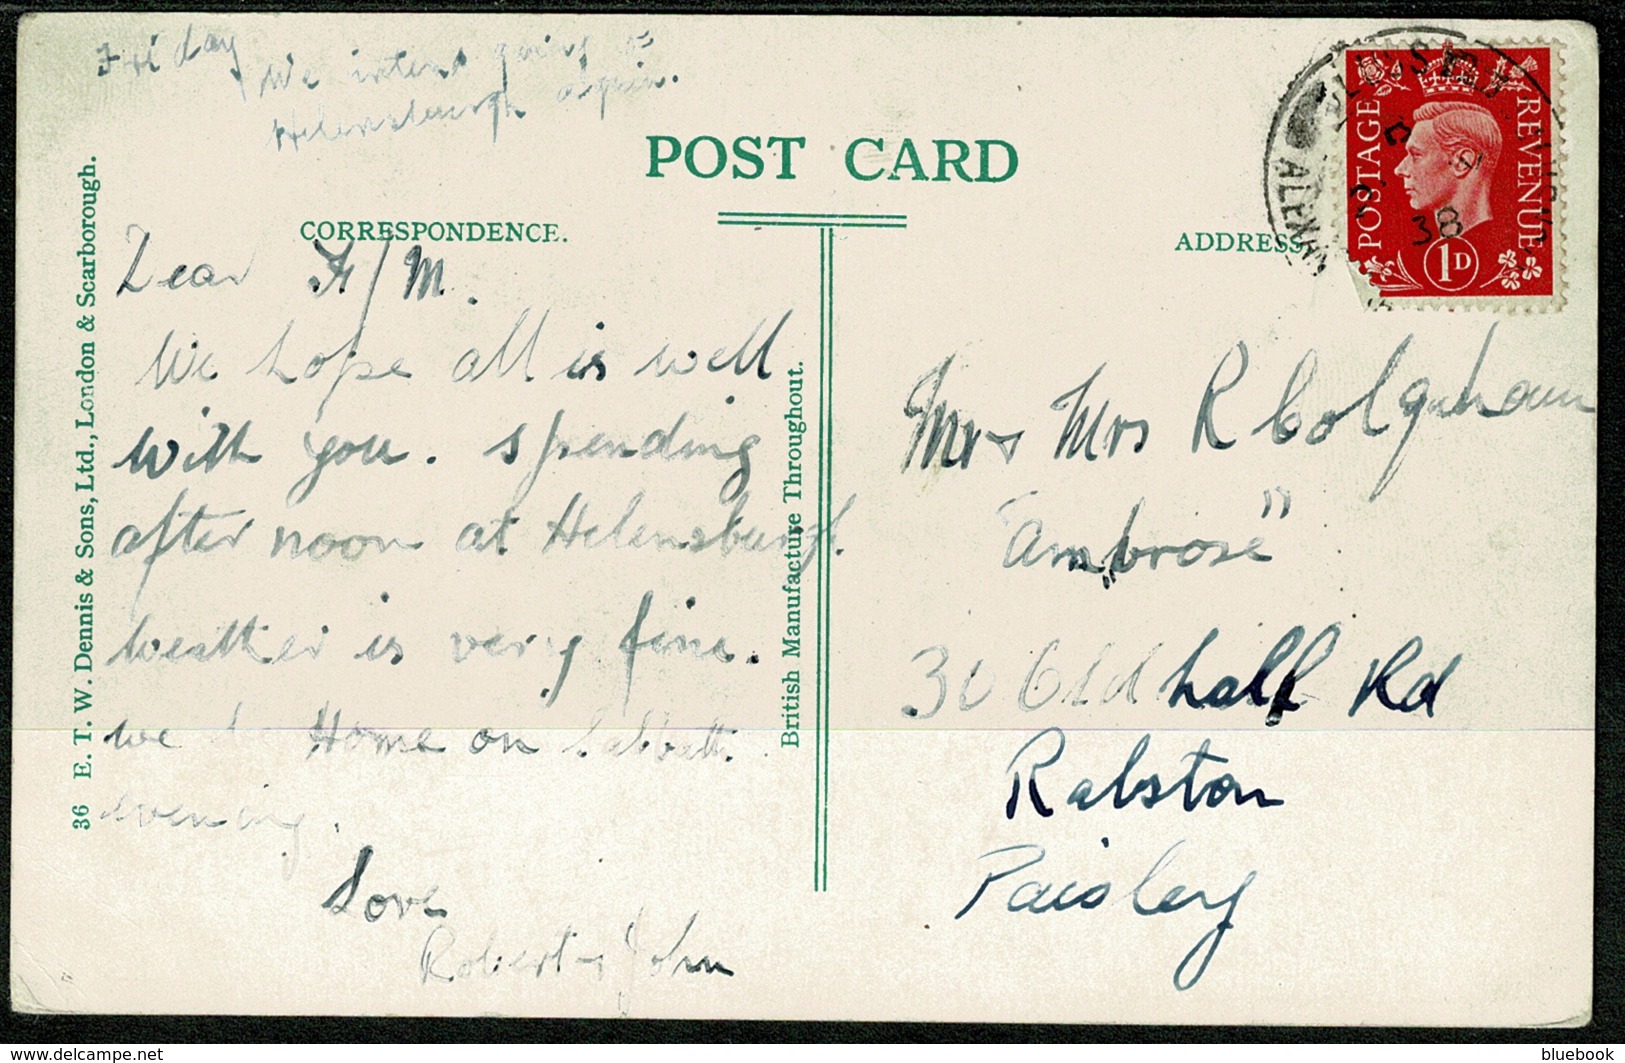 Friday
We intend going to
Helensburgh again.
POST CARD
CORRESPONDENCE.
ADDRESS
Dear F/M.
We hope all is well
with you. Spending
after noon at Helensburgh.
weather is very fine.
we Home on Sabbath
evening.
Love
Robert & John
36 E. T. W. Dennis & Sons, Ltd., London & Scarborough.
British Manufacture Throughout.
POSTAGE
REVENUE
1D
38
Mr & Mrs R Colquhoun
"Ambrose"
30 Oldhall Rd
Ralston
Paisley
bluebook
delcampe.net